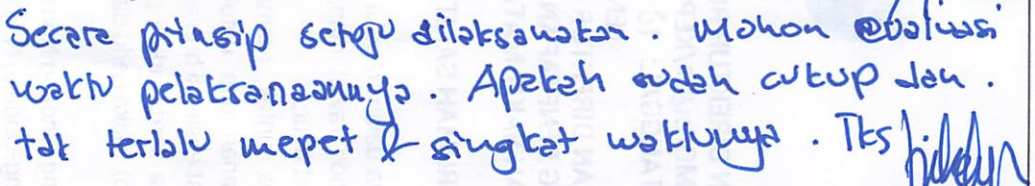 Secara prinsip setuju dilaksanakan. Mohon evaluasi
waktu pelaksanaannya. Apakah sudah cukup dan.
tak terlalu mepet & singkat waktunya. Tks